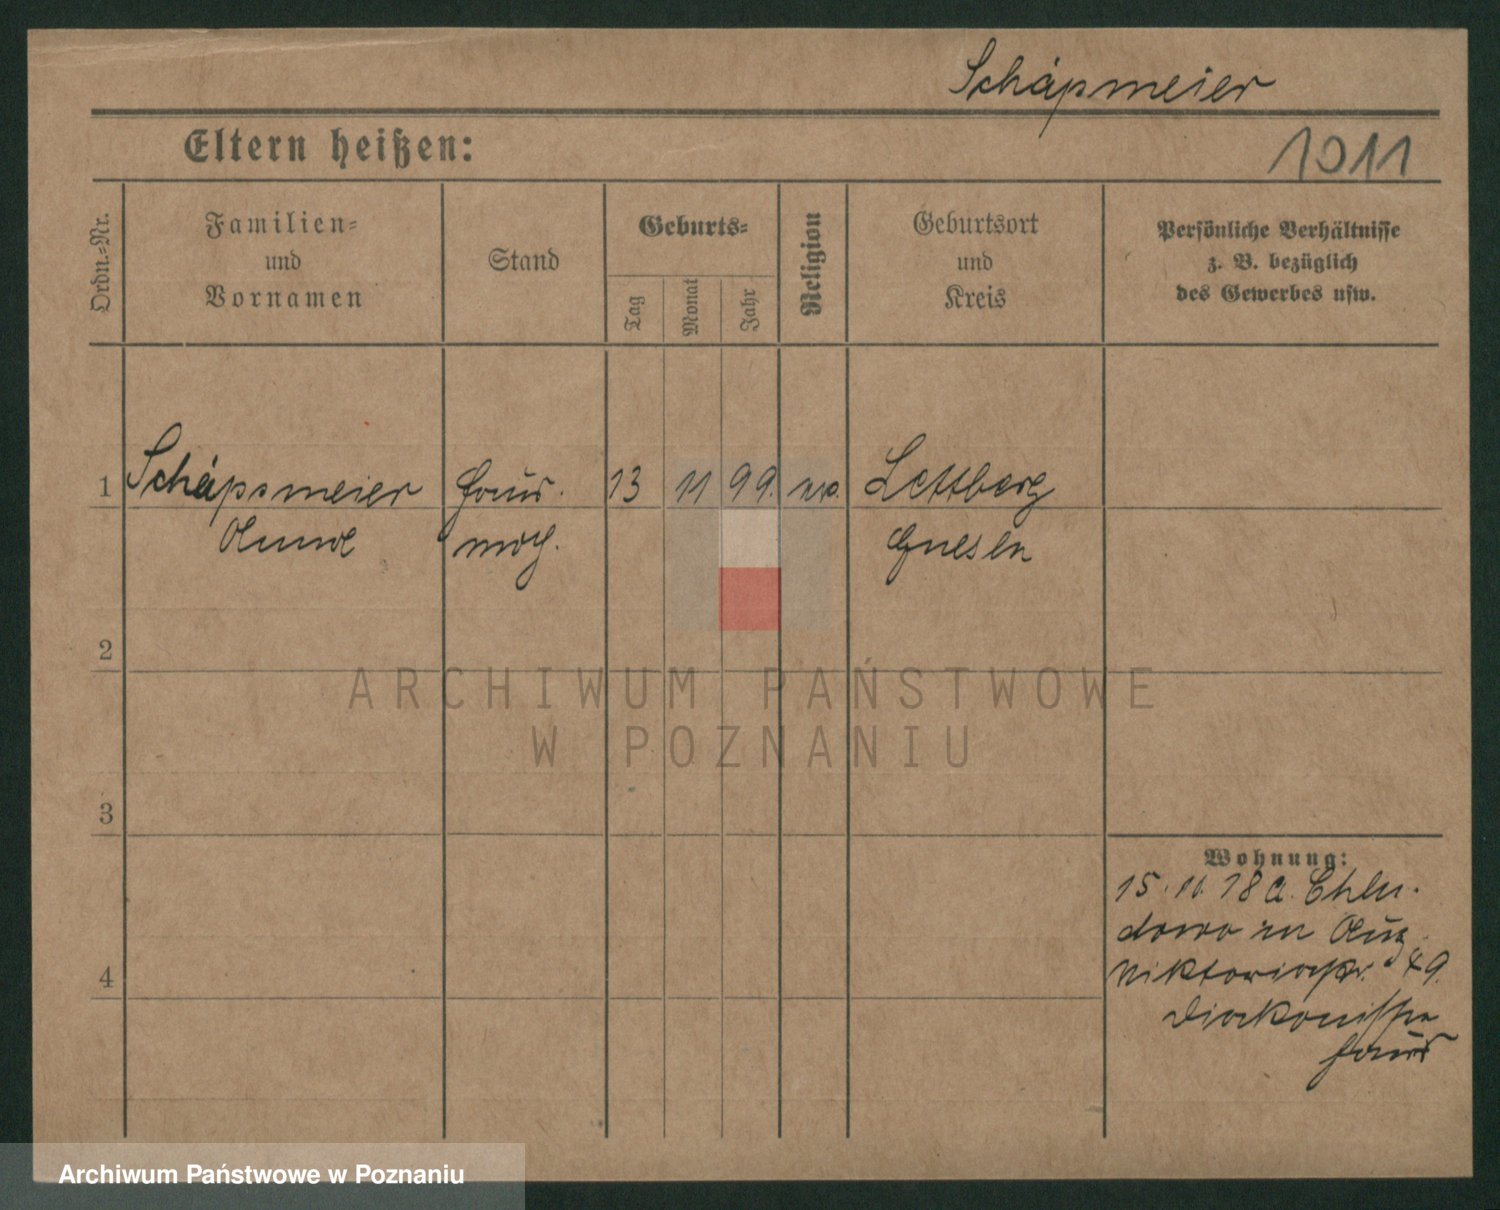 Schäpmeier
Eltern heißen:
1011
Ordn.-Nr.
Familien-
und
Vornamen
Stand
Geburts-
Tag
Monat
Jahr
Religion
Geburtsort
und
Kreis
Persönliche Verhältnisse
z. B. bezüglich
des Gewerbes usw.
1
Schäpsmeier
13
11
99.
Lettberg
Gnesen
2
3
4
Wohnung:
15.11.18 a.
in Aug.
Viktoriastr.
Diakonissen
haus
ARCHIWUM PAŃSTWOWE
W POZNANIU
Archiwum Państwowe w Poznaniu